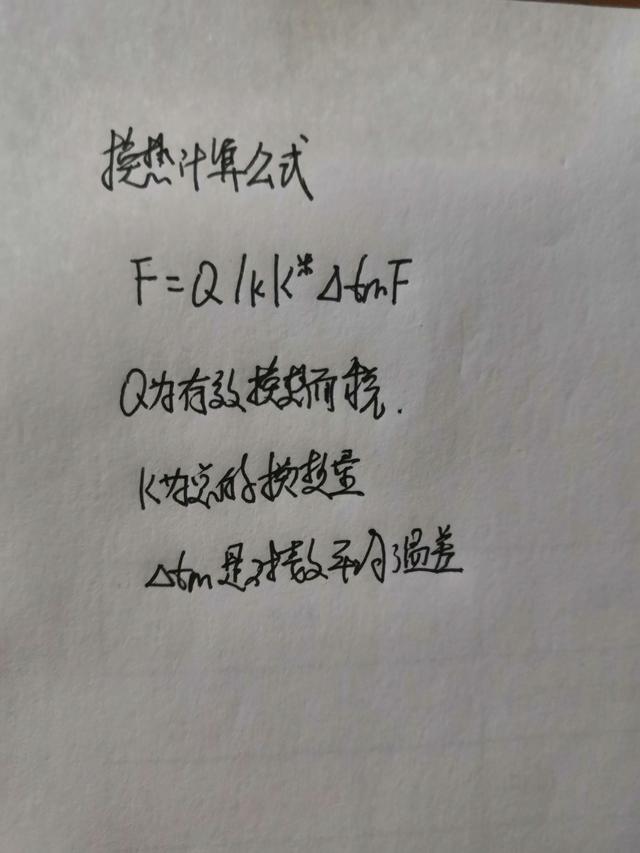 换热计算公式
F=Q/kK*Δtm F
Q为有效换热面积.
K为总的换热量
Δtm是对数平均温差